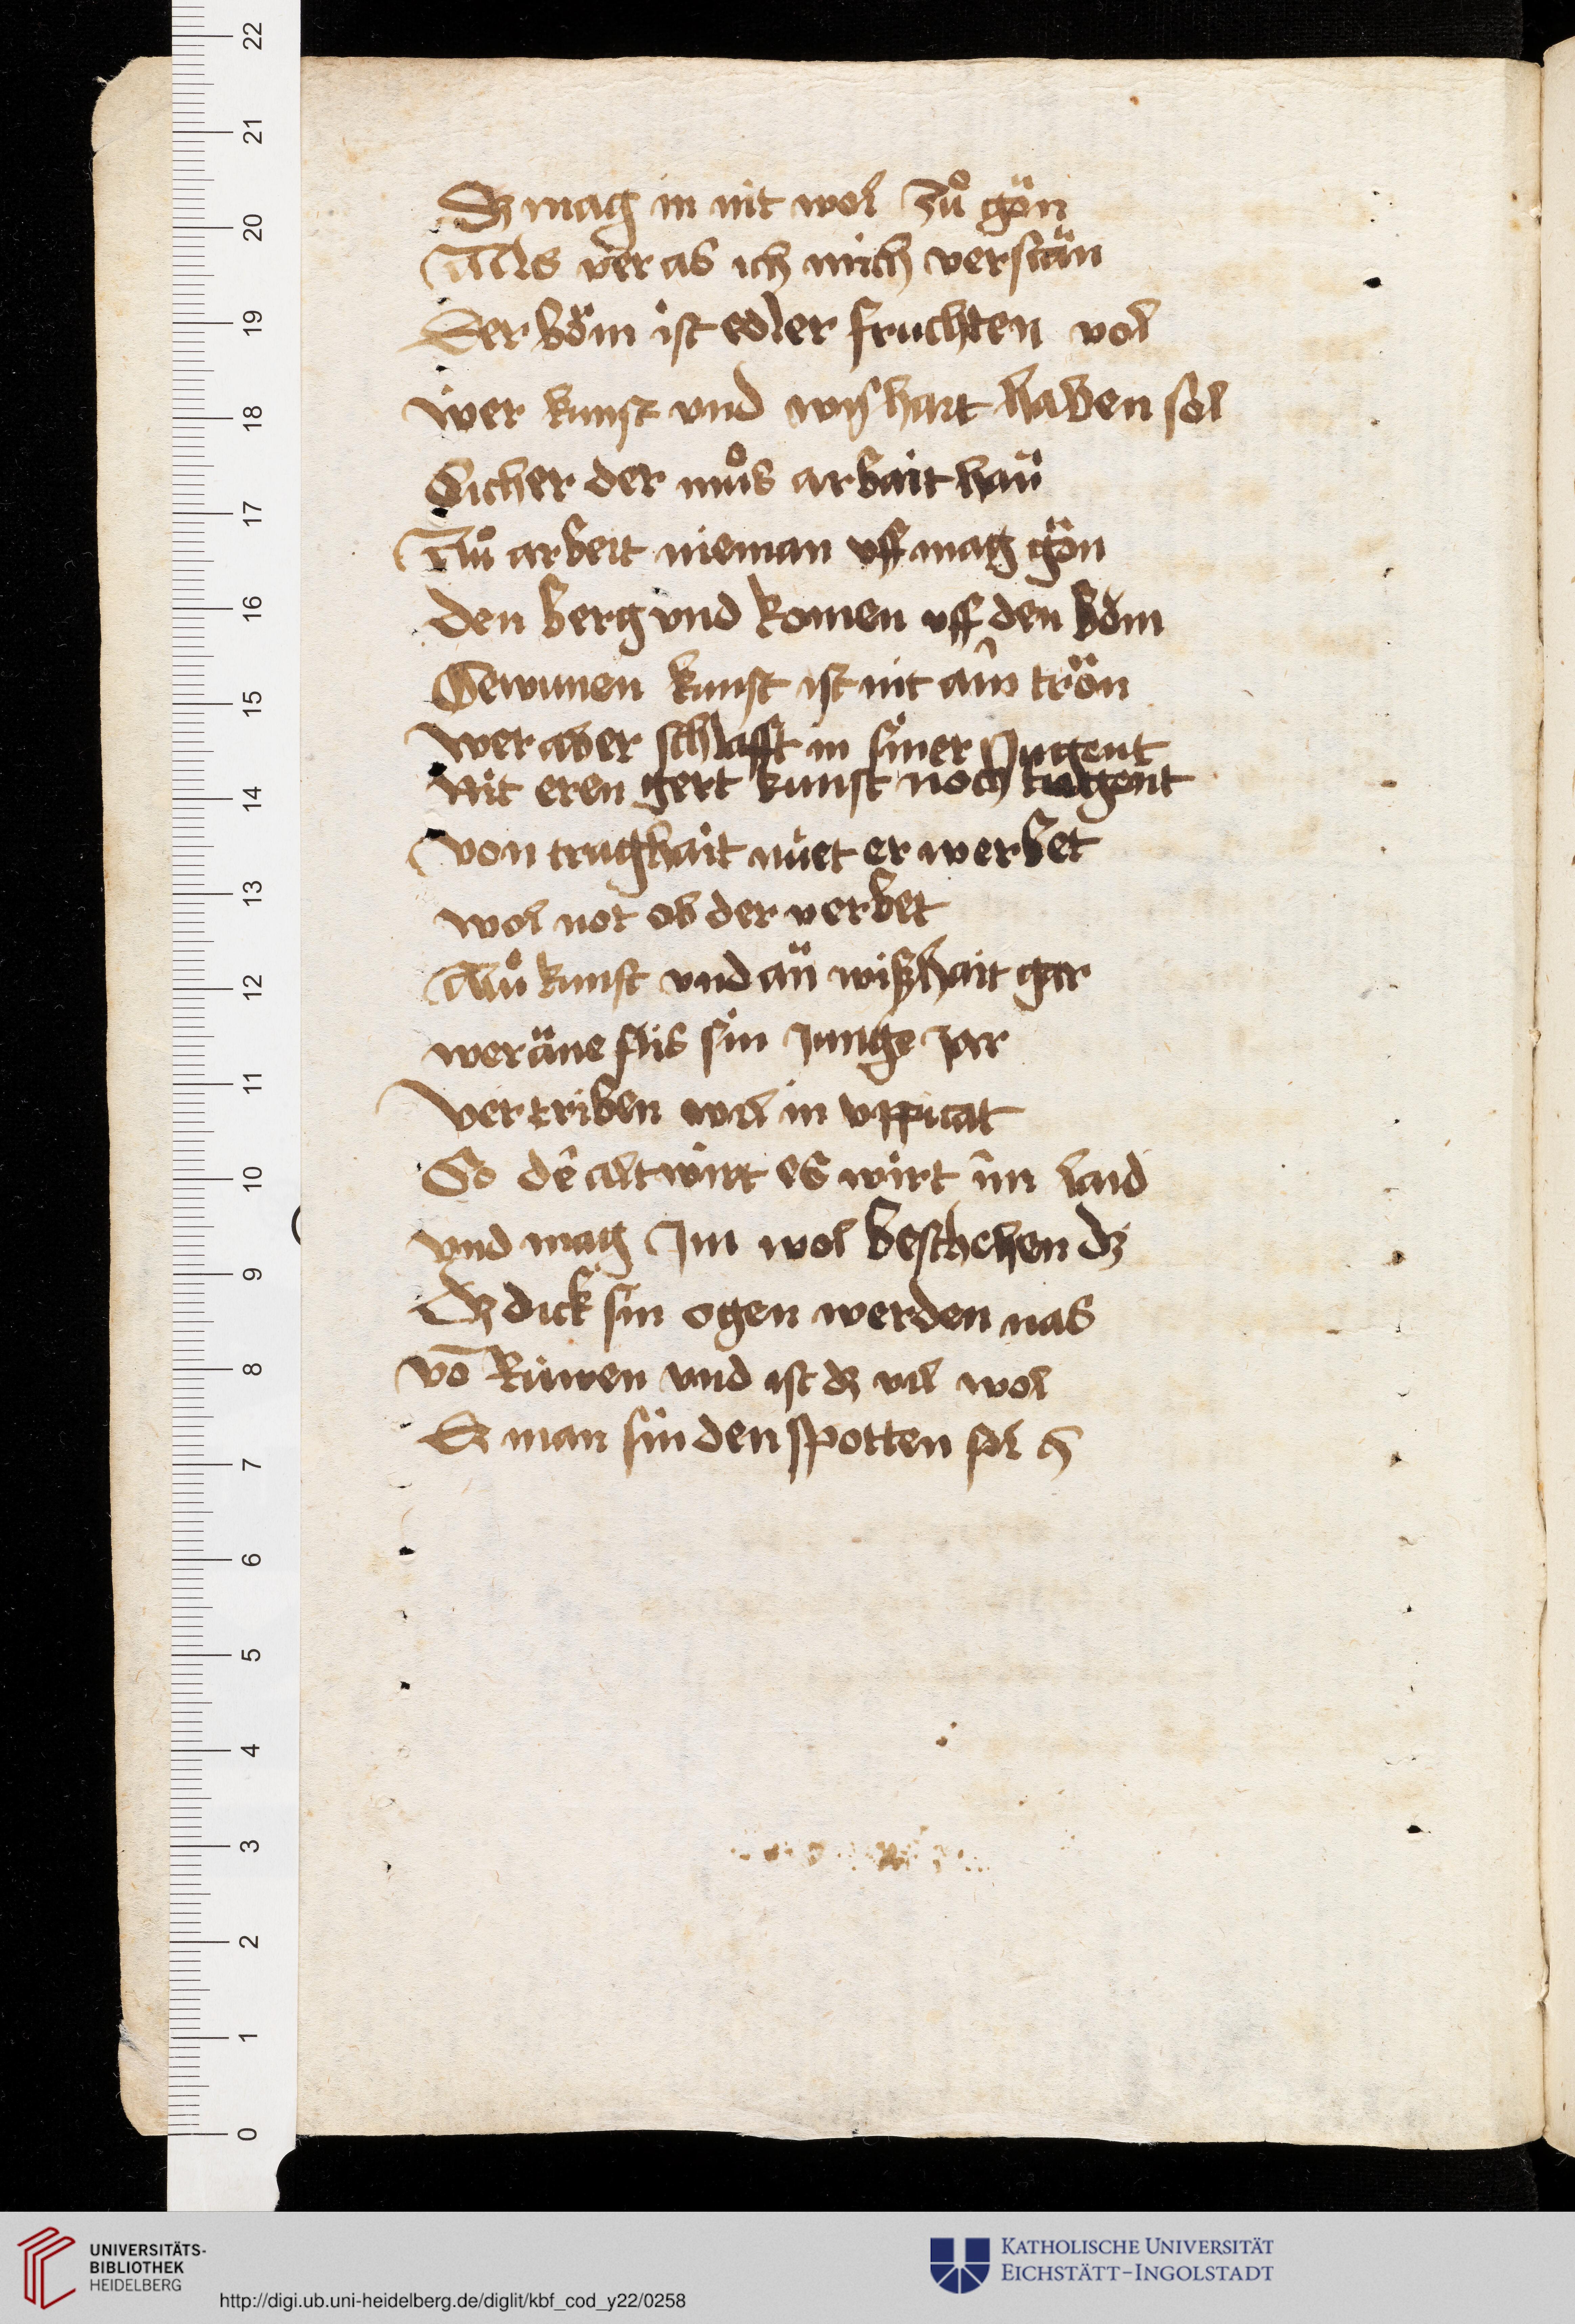 Dz mag in nit wol zuͦ gön
Als ver as ich mich verstän
Der böm ist edler fruchten vol
wer kunst vnd wyshait haben sol
Sicher der muͦs arbait haü
Aluͦ arbeit nieman vff mag gön
den berg vnd komen vff den böm
Gewunen kunst ist nit aîn trön
wer aber schlafft in siner Jugent
Nit eren gert kunst noch tugent
von traghait nüet er werbet
wol not ob der verbet
Aluͦ kunst vnd aü wißhait gar
wer äne flis sin junge jar
Vertriben wil in vppicat
So dê alt wirt es wirt îm laid
vnd mag Jm wol beschehen dz
Dz dick sin ogen werden nas
vō Rüwen vnd ist dz vil wol
Dz man sin den spotten sol
22
21
20
19
18
17
16
15
14
13
12
11
10
9
8
7
6
5
4
3
2
1
0
UNIVERSITÄTS-
BIBLIOTHEK
HEIDELBERG
http://digi.ub.uni-heidelberg.de/diglit/kbf_cod_y22/0258
KATHOLISCHE UNIVERSITÄT
EICHSTÄTT-INGOLSTADT